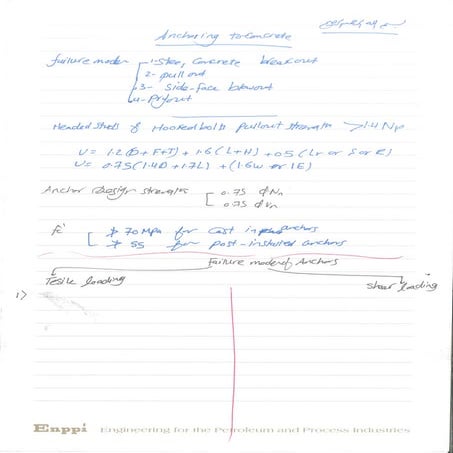 Anchoring to Concrete
failure modes 1- Steel, Concrete breakout
2- pullout
3- Side-face blowout
4- Pryout
Headed studs & Hooked bolts pullout strength > 1.4 Np
U = 1.2(D+F+T) + 1.6(L+H) + 0.5(Lr or S or R)
U = 0.75(1.4D + 1.7L) + (1.6W or 1E)
Anchor Design strengths 0.75 ΦNn
0.75 ΦVn
fc' ≯ 70 MPa for Cast in anchors
≯ 55 for post-installed anchors
Failure modes of Anchors
Tesile loading Shear loading
1>
Enppi Engineering for the Petroleum and Process Industries